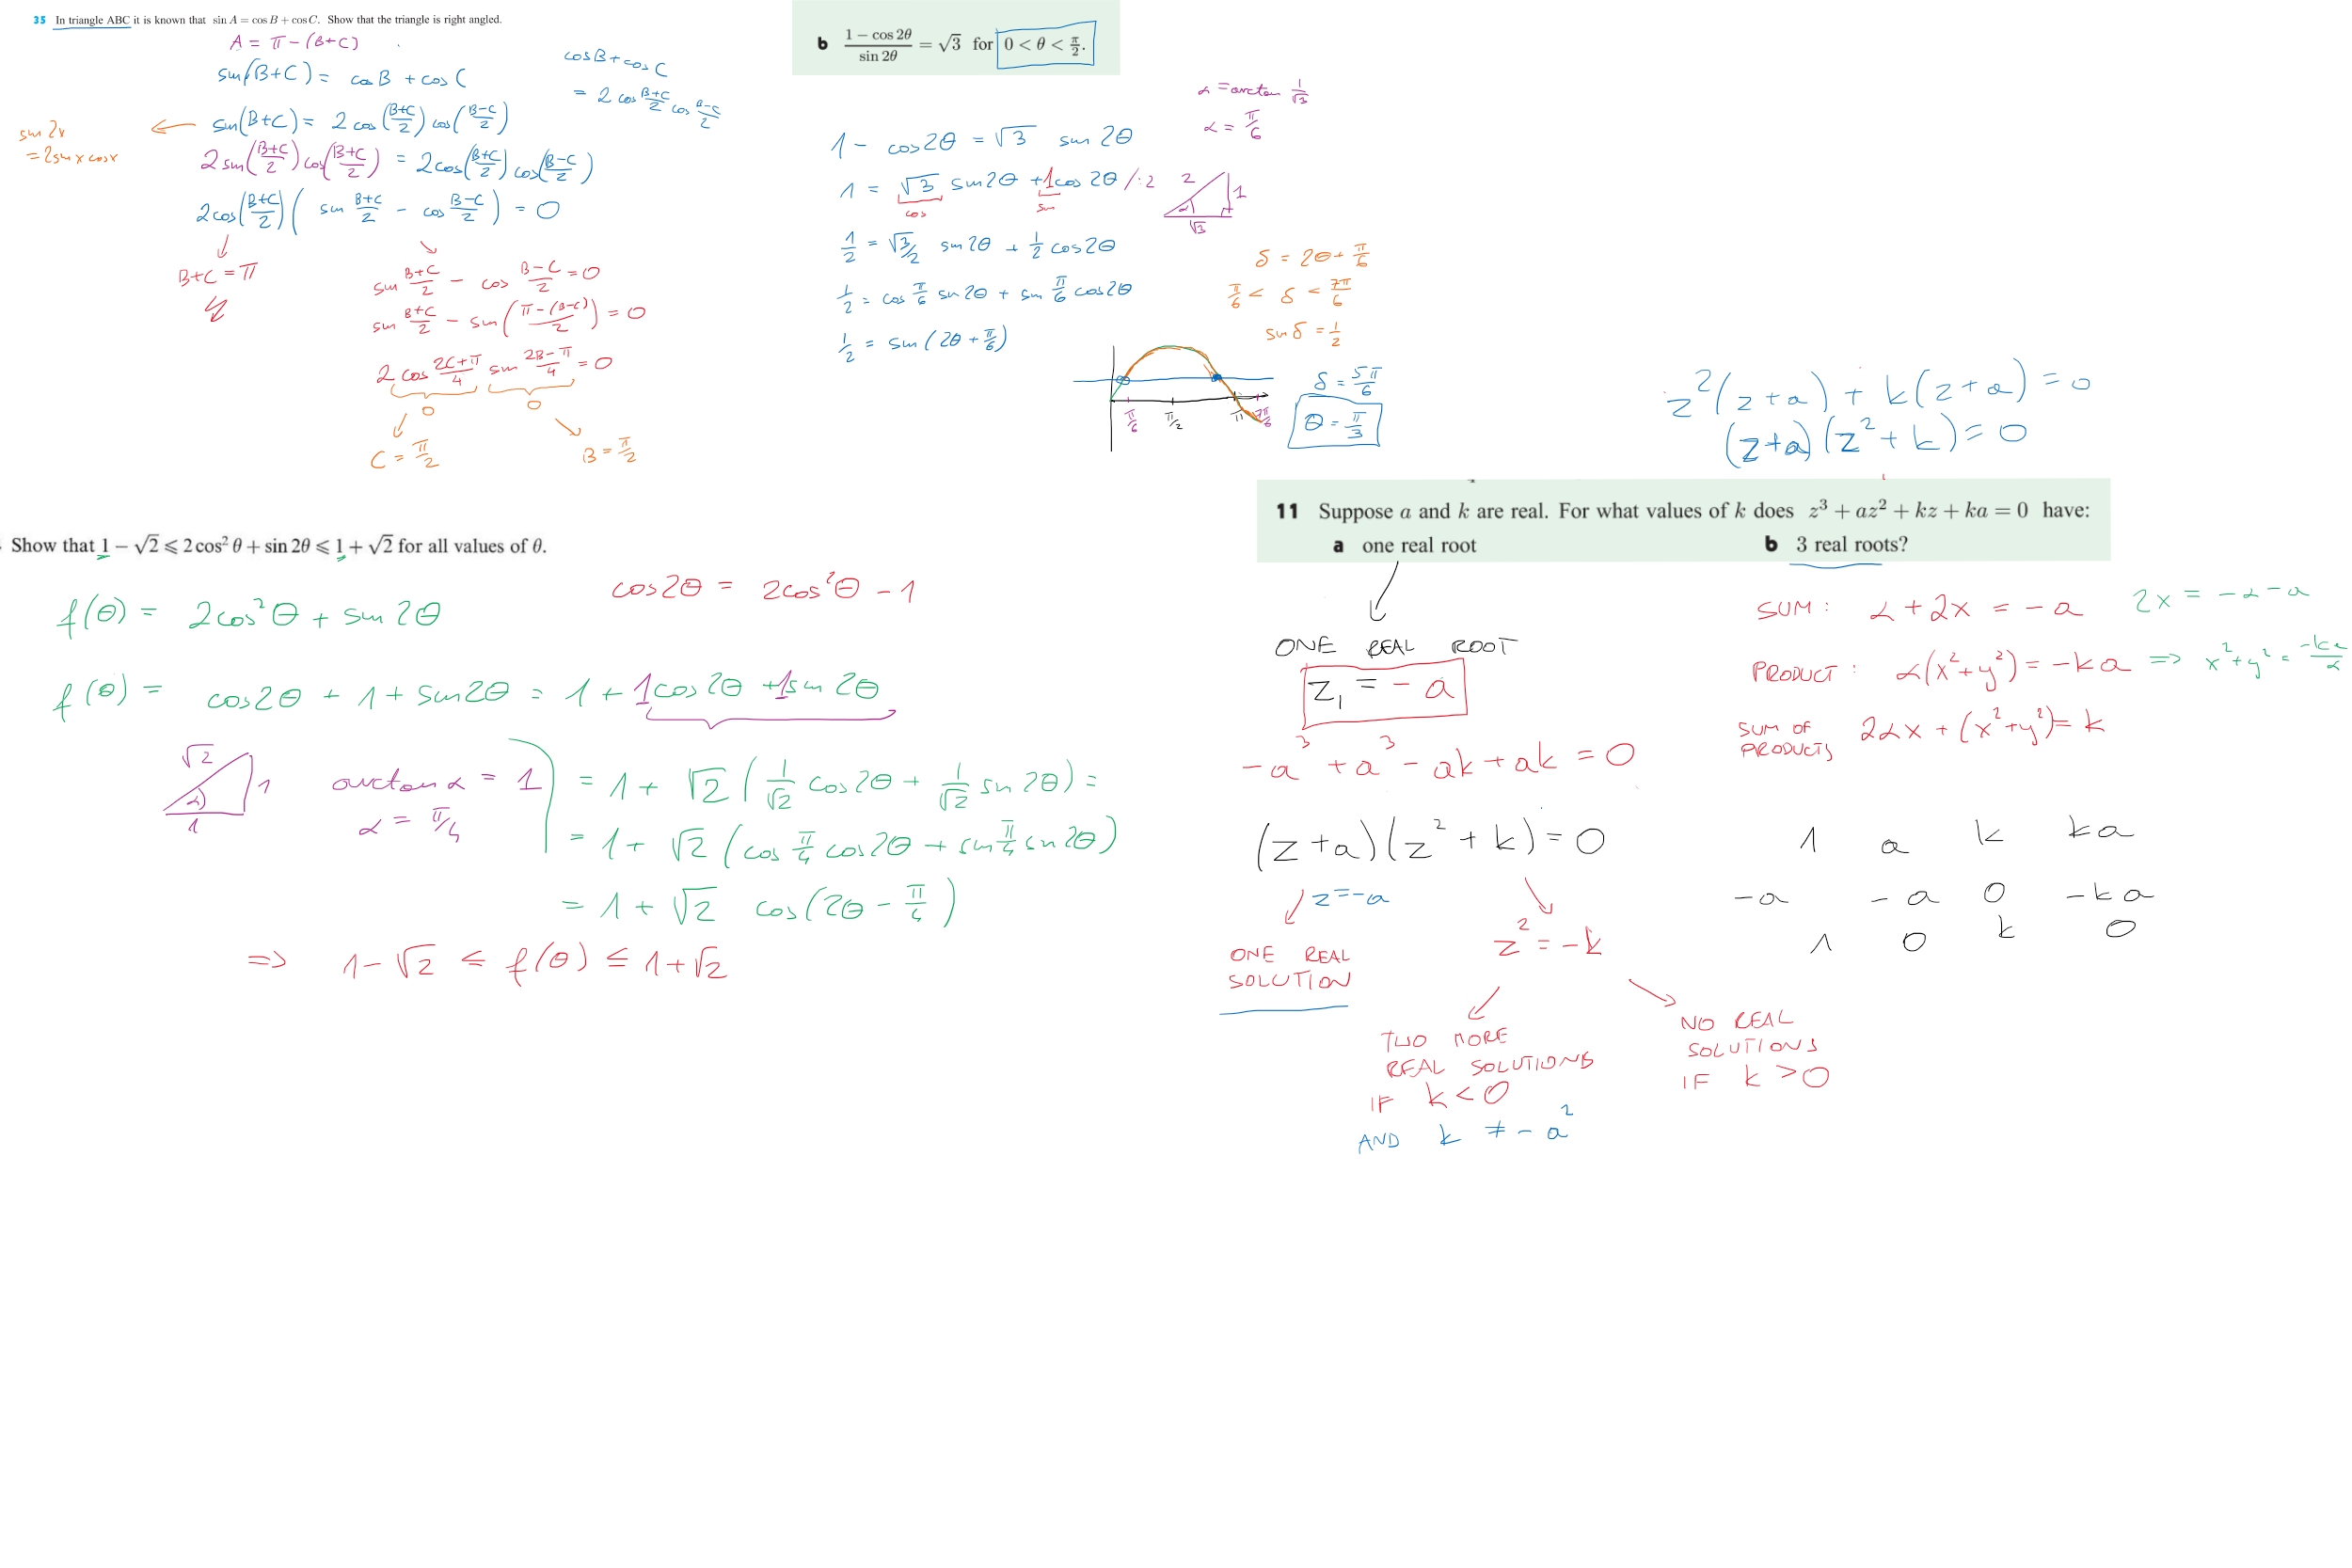 35 In triangle ABC it is known that sin A = cos B + cos C. Show that the triangle is right angled.
A = π − (B+C)
sin(B+C) = cos B + cos C
cos B + cos C
= 2 cos (B+C)/2 cos (B−C)/2
sin 2x
= 2 sin x cos x
sin(B+C) = 2 cos((B+C)/2) cos((B−C)/2)
2 sin((B+C)/2) cos((B+C)/2) = 2 cos((B+C)/2) cos((B−C)/2)
2 cos((B+C)/2) ( sin (B+C)/2 − cos (B−C)/2 ) = 0
B+C = π
sin (B+C)/2 − cos (B−C)/2 = 0
sin (B+C)/2 − sin( (π−(B−C))/2 ) = 0
2 cos (2C+π)/4 sin (2B−π)/4 = 0
0 0
C = π/2 B = π/2
b (1 − cos 2θ)/(sin 2θ) = √3 for 0 < θ < π/2.
α = arctan 1/√3
α = π/6
1 − cos 2θ = √3 sin 2θ
1 = √3 sin 2θ + 1 cos 2θ /:2
cos sin
2 1 α √3
1/2 = √3/2 sin 2θ + 1/2 cos 2θ
1/2 = cos π/6 sin 2θ + sin π/6 cos 2θ
1/2 = sin(2θ + π/6)
δ = 2θ + π/6
π/6 < δ < 7π/6
sin δ = 1/2
π/6 π/2 π 7π/6
δ = 5π/6
θ = π/3
z²(z+a) + k(z+a) = 0
(z+a)(z²+k) = 0
Show that 1 − √2 ⩽ 2 cos² θ + sin 2θ ⩽ 1 + √2 for all values of θ.
cos 2θ = 2cos²θ − 1
f(θ) = 2cos²θ + sin 2θ
f(θ) = cos 2θ + 1 + sin 2θ = 1 + 1 cos 2θ + 1 sin 2θ
√2 1 α 1
arctan α = 1
α = π/4
= 1 + √2 ( 1/√2 cos 2θ + 1/√2 sin 2θ ) =
= 1 + √2 (cos π/4 cos 2θ + sin π/4 sin 2θ)
= 1 + √2 cos(2θ − π/4)
⇒ 1 − √2 ≤ f(θ) ≤ 1 + √2
11 Suppose a and k are real. For what values of k does z³ + az² + kz + ka = 0 have:
a one real root b 3 real roots?
ONE REAL ROOT
z₁ = − a
−a³ + a³ − ak + ak = 0
(z+a)(z² + k) = 0
z = −a
ONE REAL
SOLUTION
z² = −k
TWO MORE
REAL SOLUTIONS
IF k < 0
AND k ≠ − a²
NO REAL
SOLUTIONS
IF k > 0
SUM: α + 2x = − a 2x = −α − a
PRODUCT: α(x²+y²) = −ka ⇒ x²+y² = −ka/α
SUM OF
PRODUCTS 2αx + (x²+y²) = k
1 a k ka
−a −a 0 −ka
1 0 k 0